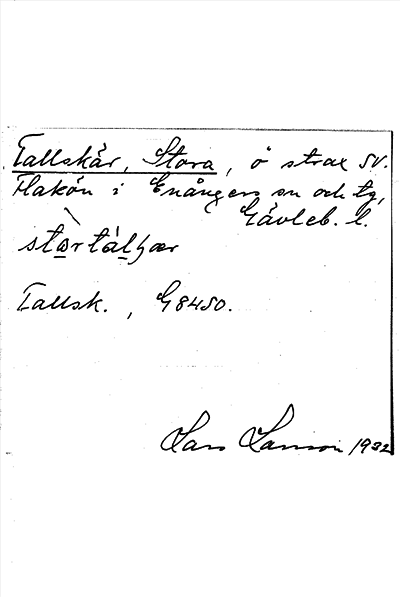 Tallskär, Stora, ö strax SV.
Flakön i Enångers sn och tg,
Gävleb. l.
stòrtálʃær
Tallsk., G8450.
Lars Larsson 1932